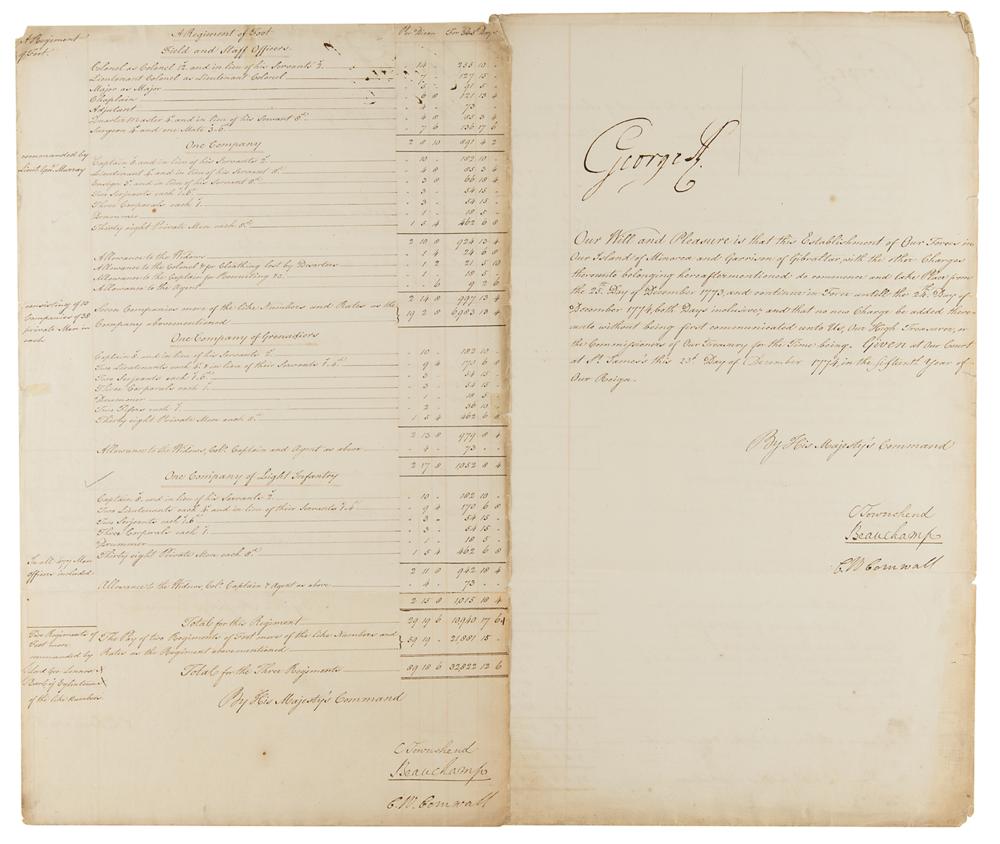 A Regiment of Foot
A Regiment of Foot Per Diem For 365 Days
Field and Staff Officers
Colonel as Colonel 12s. and in lieu of his Servants 2s. - 14 - 255 10 -
Lieutenant Colonel as Lieutenant Colonel - 7 - 127 15 -
Major as Major - 5 - 91 5 -
Chaplain - 6 8 121 13 4
Adjutant - 4 - 73 - -
Quarter Master 4s. and in lieu of his Servant 8d. - 4 8 85 3 4
Surgeon 4s. and one Mate 3s.6d. - 7 6 136 17 6
2 8 10 891 4 2
One Company
commanded by
Lieut. Genl. Murray
Captain 8s. and in lieu of his Servants 2s. - 10 - 182 10 -
Lieutenant 4s. and in lieu of his Servant 8d. - 4 8 85 3 4
Ensign 3s. and in lieu of his Servant 8d. - 3 8 66 18 4
Two Serjeants each 1s.6d. - 3 - 54 15 -
Three Corporals each 1s. - 3 - 54 15 -
Drummer - 1 - 18 5 -
Thirty eight Private Men each 8d. 1 5 4 462 6 8
2 10 8 924 13 4
Allowance to the Widows - 1 4 24 6 8
Allowance to the Colonel & for Cloathing lost by Deserters - 1 2 21 5 10
Allowance to the Captain for Recruiting &c. - 1 - 18 5 -
Allowance to the Agent - - 6 9 2 6
2 14 8 997 13 4
consisting of 10
Companies of 38
private Men in
each
Seven Companies more of the like Numbers and Rates as the
Company abovementioned 19 2 8 6983 13 4
One Company of Grenadiers
Captain 8s. and in lieu of his Servants 2s. - 10 - 182 10 -
Two Lieutenants each 4s. & in lieu of their Servants 1s.4d. - 9 4 170 6 8
Two Serjeants each 1s.6d. - 3 - 54 15 -
Three Corporals each 1s. - 3 - 54 15 -
Drummer - 1 - 18 5 -
Two Fifers each 1s. - 2 - 36 10 -
Thirty eight Private Men each 8d. 1 5 4 462 6 8
2 13 8 979 8 4
Allowance to the Widows, Coll. Captain and Agent as above - 4 - 73 - -
2 17 8 1052 8 4
One Company of Light Infantry
Captain 8s. and in lieu of his Servants 2s. - 10 - 182 10 -
Two Lieutenants each 4s. and in lieu of their Servants 1s.4d. - 9 4 170 6 8
Two Serjeants each 1s.6d. - 3 - 54 15 -
Three Corporals each 1s. - 3 - 54 15 -
Drummer - 1 - 18 5 -
Thirty eight Private Men each 8d. 1 5 4 462 6 8
In all 477 Men
officers included
2 11 8 942 18 4
Allowance to the Widows, Coll. Captain & Agent as above - 4 - 73 - -
2 15 8 1015 18 4
Total for this Regiment 29 19 6 10940 17 6
Two Regiments of
Foot more
commanded by
Lord Geo. Lennox
Earl of Eglintoun
of the like Numbers
The Pay of two Regiments of Foot more of the like Numbers and
Rates as the Regiment abovementioned 59 19 - 21881 15 -
Total for the Three Regiments 89 18 6 32822 12 6
By His Majesty's Command
C Townshend
Beauchamp
C. W. Cornwall
George R.
Our Will and Pleasure is that this Establishment of Our Forces in
Our Island of Minorca and Garrison of Gibraltar, with the other Charges
thereunto belonging hereaftermentioned do commence and take Place from
the 25th. Day of December 1773, and continue in Force untill the 24th. Day of
December 1774, both Days inclusive, and that no new Charge be added there-
unto without being first communicated unto Us, Our High Treasurer, or
the Commissioners of Our Treasury for the Time being. Given at Our Court
at St. James's this 23d. Day of December 1774, in the Fifteenth Year of
Our Reign.
By His Majesty's Command
C Townshend
Beauchamp
C. W. Cornwall